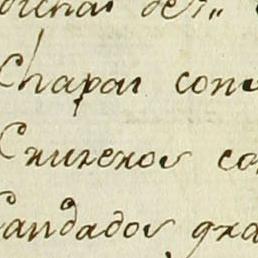 dichas de
Chapas con
Cruzeros co
Candados gra